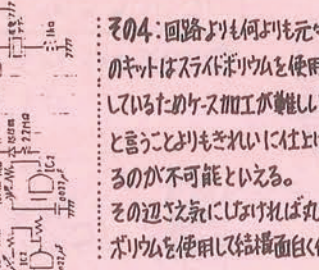 1kΩ
その4:回路よりも何よりも元々
のキットはスライドボリウムを使用
しているためケース加工が難しい
と言うことよりもきれいに仕上げ
るのが不可能といえる。
その辺さえ気にしなければ丸
ボリウムを使用して結構面白く作
2.2MΩ
IC2
0.022μF
IC2